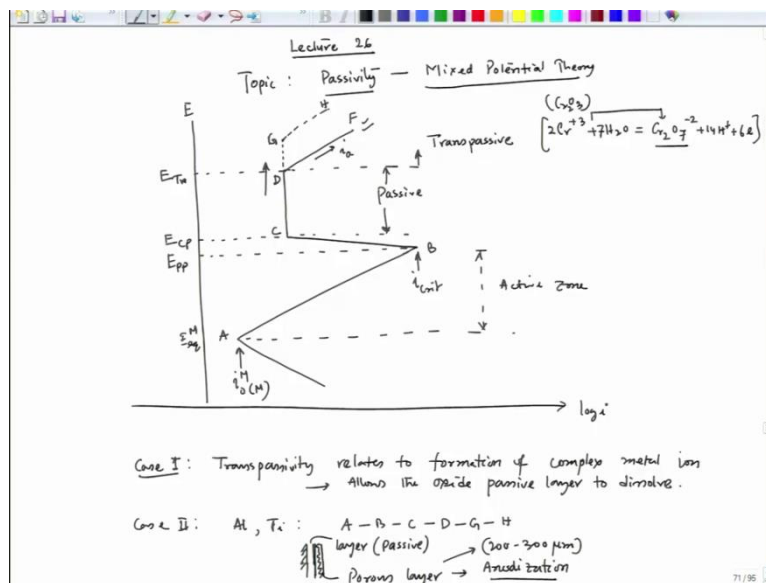 Lecture 26
Topic : Passivity — Mixed Potential Theory
E
(Cr2O3)
[2Cr+3 + 7H2O = Cr2O7-2 + 14H+ + 6e]
H
G
F
ia
Transpassive
ETr
D
Passive
ECP
C
EPP
B
icrit
Active Zone
EMeq
A
iMo(M)
log i
Case I : Transpassivity relates to formation of complex metal ion
→ Allows the oxide passive layer to dissolve.
Case II : Al, Ti : A – B – C – D – G – H
layer (Passive)
(200-300 μm)
Porous layer → Anodization
71/95